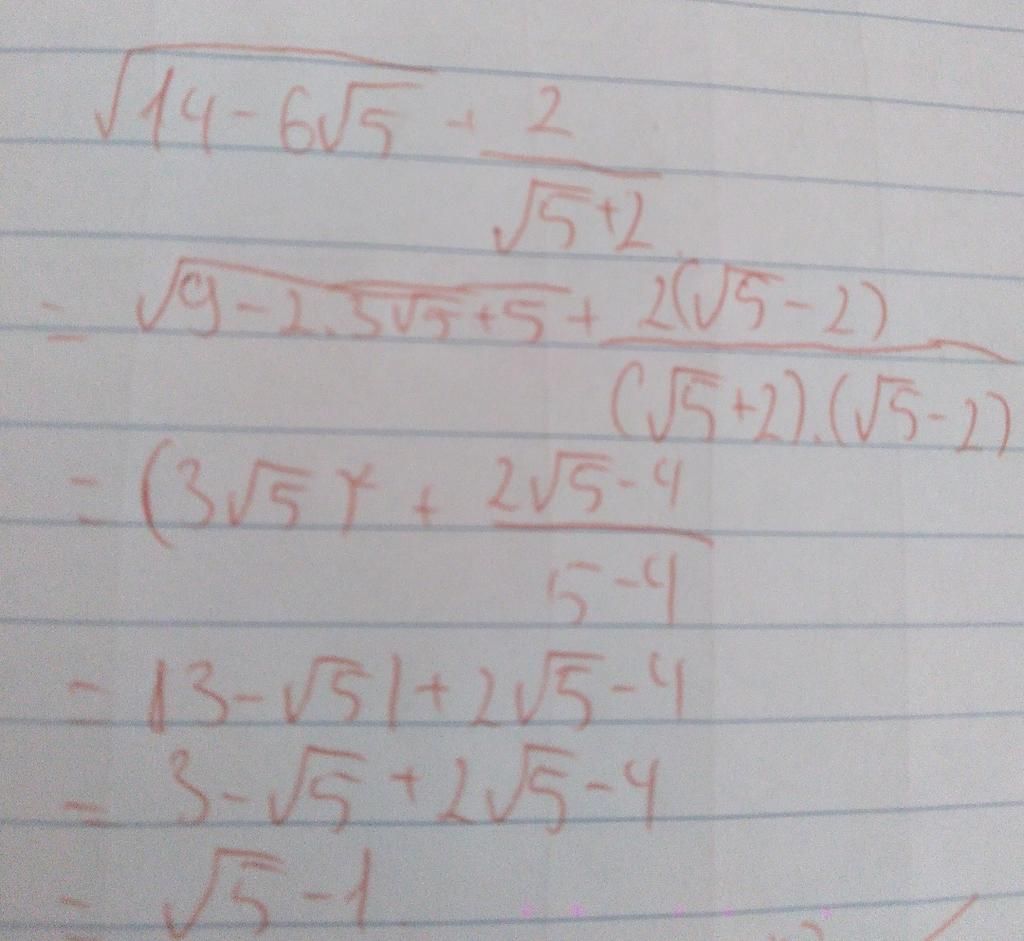 √(14 - 6√5) + 2/(√5 + 2)
= √(9 - 2.3√5 + 5) + 2(√5 - 2)/((√5 + 2).(√5 - 2))
= (3√5) + (2√5 - 4)/(5 - 4)
= |3 - √5| + 2√5 - 4
= 3 - √5 + 2√5 - 4
= √5 - 1